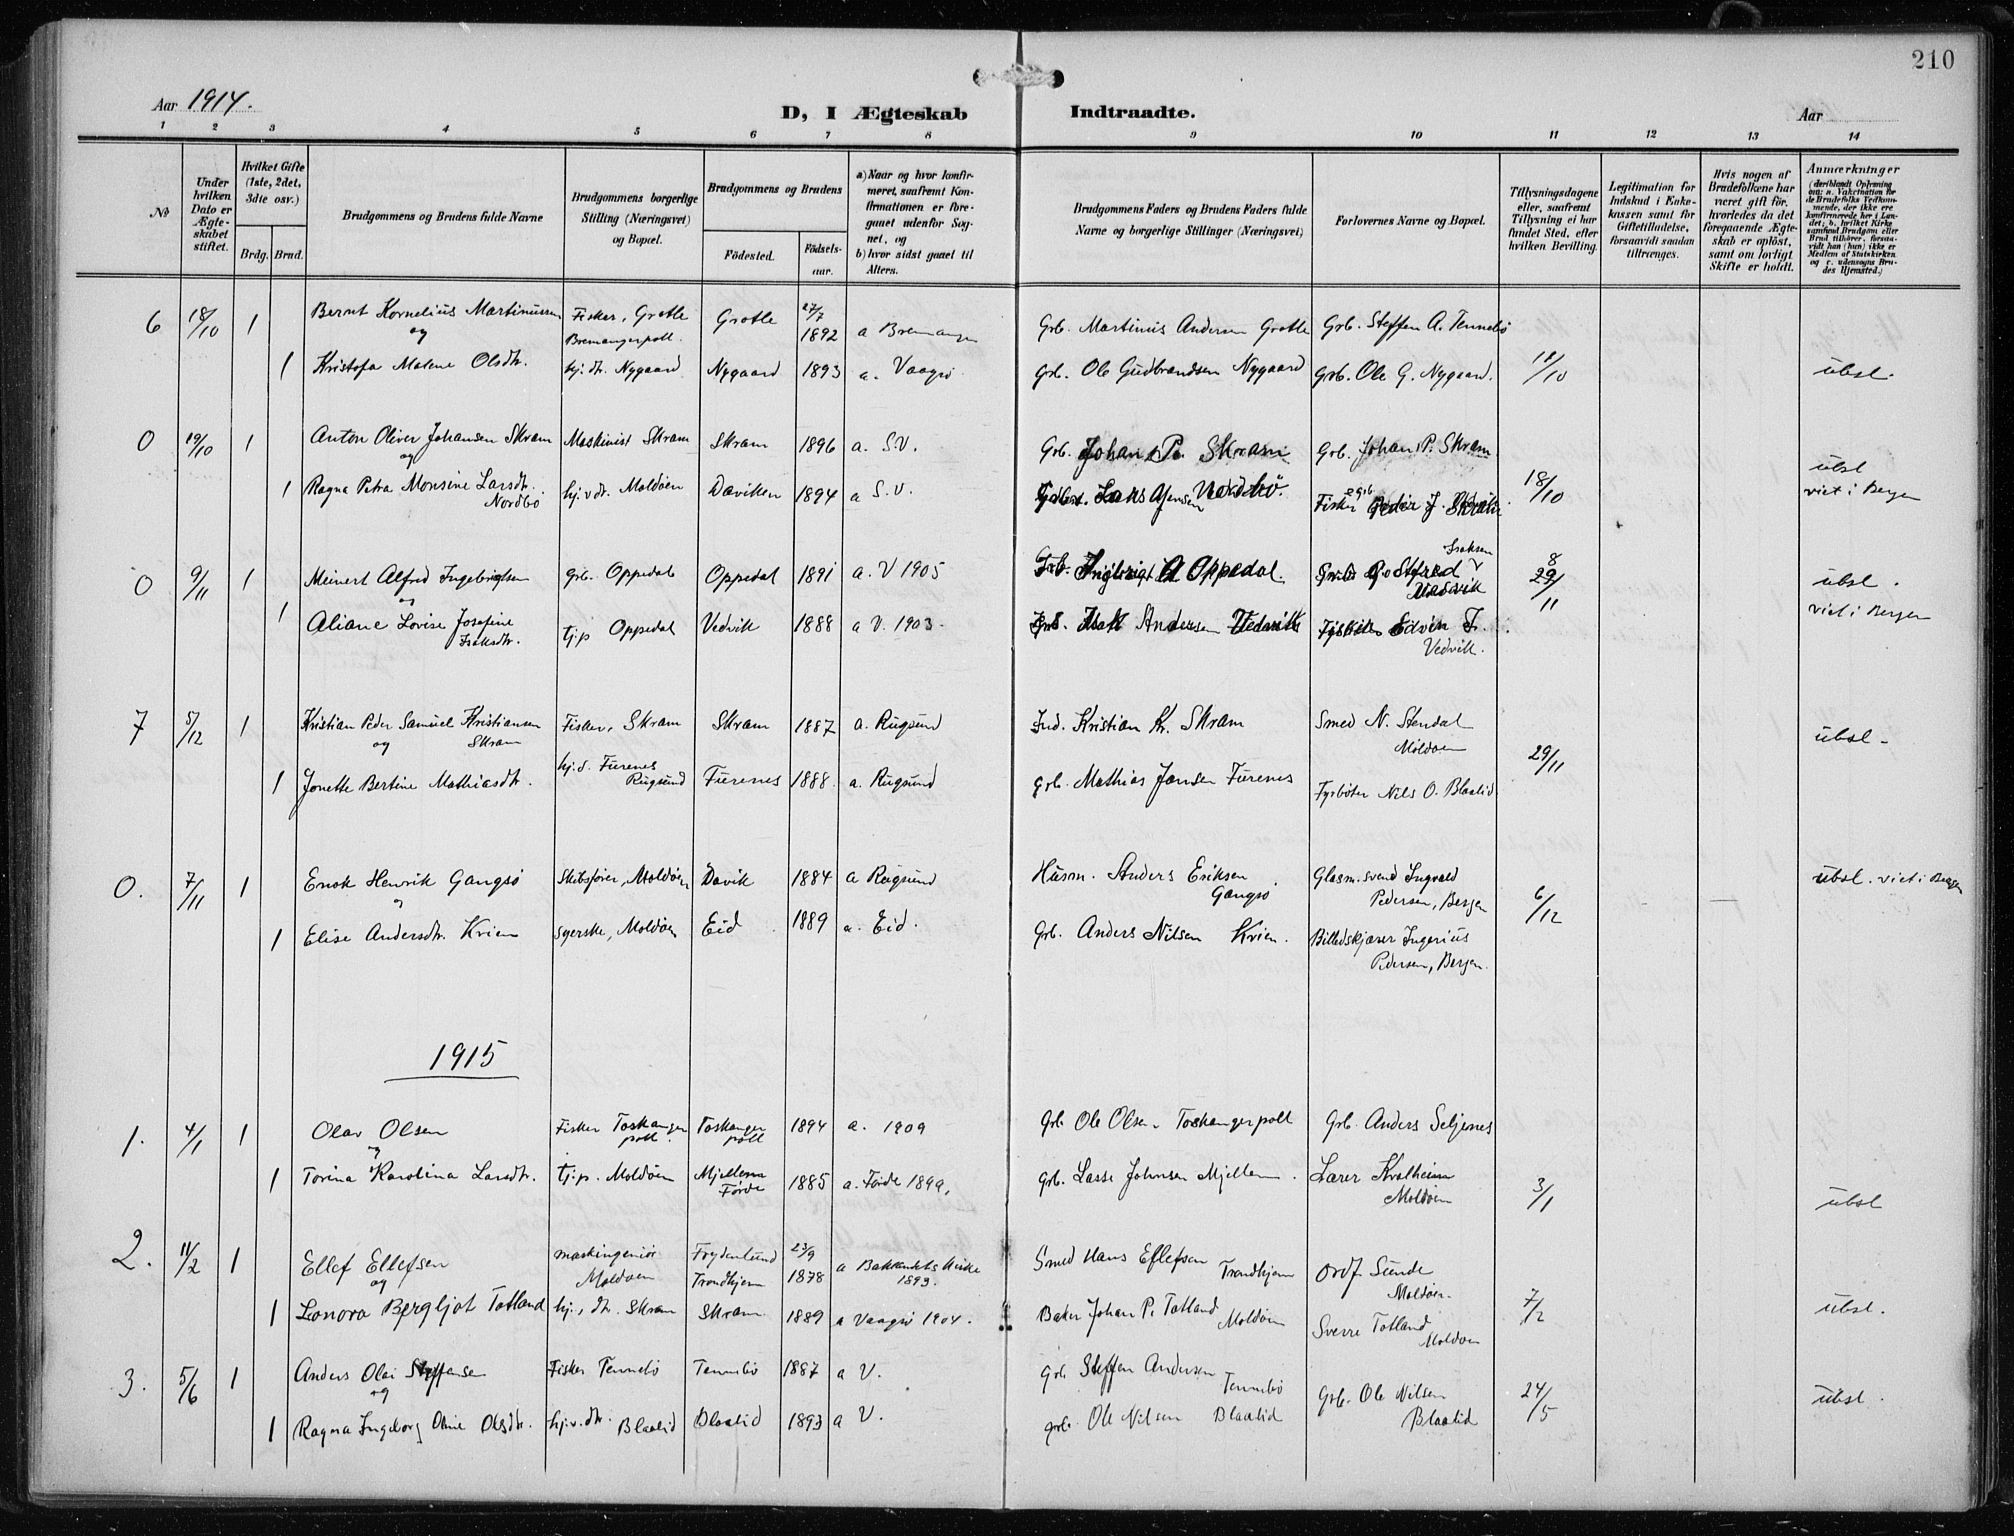 210
Aar 1914.
D, I Ægteskab Indtraadte.
Aar
1 2 3 4 5 6 7 8 9 10 11 12 13 14
№
Under hvilken Dato er Ægteskabet stiftet.
Hvilket Gifte (1ste, 2det, 3dte osv.)
Brdg. Brud.
Brudgommens og Brudens fulde Navne
Brudgommens borgerlige Stilling (Næringsvei) og Bopæl.
Brudgommens og Brudens
Födested. Födselsaar.
a) Naar og hvor konfirmeret, saafremt Konfirmationen er foregaaet udenfor Sognet, og
b) hvor sidst gaaet til Alters.
Brudgommens Faders og Brudens Faders fulde Navne og borgerlige Stillinger (Næringsvei)
Forlovernes Navne og Bopæl.
Tillysningsdagene eller, saafremt Tillysning ei har fundet Sted, efter hvilken Bevilling.
Legitimation for Indskud i Enkekassen samt for Giftetilladelse, forsaavidt saadan tiltrænges.
Hvis nogen af Brudefolkene har været gift för, hvorledes da det foregaaende Ægteskab er oplöst, samt om lovligt Skifte er holdt.
Anmærkninger
(deriblandt Oplysning om: a. Vakcination for de Brudefolks Vedkommende, der ikke ere konfirmerede her i Landet; b. hvilket Kirkesamfund Brudgom eller Brud tilhörer, forsaavidt han (hun) ikke er Medlem af Statskirken og c. udensogns Brudes Hjemsted.)
6 18/10 1 Bernt Kornelius Martinussen Fisker, Grotle Bremangerpoll. Grotle 27/7 1892 a Bremanger Grb. Martinus Andersen Grotle Grb. Steffen A. Tennebø
og
1 Kristofa Malene Olsdtr. hj. dtr. Nygaard Nygaard 1893 a. Vaagsø Grb. Ole Gudbrandsen Nygaard Grb. Ole G. Nygaard. 11/10 ubsl.
0 19/10 1 Anton Oliver Johansen Skram Maskinist Skram Skram 1896 a. S.V. Grb. Johan P. Skram Grb. Johan P. Skram
og
1 Ragna Petra Monsine Larsdtr. Nordbø hj.v.dtr. Moldøen Daviken 1894 a S.V. Lars Jensen Nordbø. Fisker Peder J. 18/10 ubsl viet i Bergen
0 9/11 1 Meinert Alfred Ingebrigtsen Grb. Oppedal Oppedal 1891 a. V 1905 Grb. Ingebrigt A Oppedal. Isaksen Vedvik 8 29/11 ubsl.
og
1 Aliane Lovise Josefine Isaksdtr. tj.p Oppedal Vedvik 1888 a V. 1903. Isak Andersen Vedvik Edvin I. Vedvik. viet i Bergen
7 5/12 1 Kristian Peder Samuel Kristiansen Skram Fisker, Skram Skram 1887 a. Rugsund Ind. Kristian Kr. Skram Smed N. Stendal Moldøen ubsl.
og
1 Jonette Bertine Mathiasdtr. hj.d. Furenes Rugsund Furenes 1888 a. Rugsund Grb. Mathias Jansen Furenes Fyrbøter Nils O. Blaalid 29/11
0. 7/11 1 Enok Henrik Gangsø Skibsfører, Moldøen Davik 1884 a Rugsund Husm. Anders Eriksen Gangsø Glasm. svend Ingvald Pedersen, Bergen 6/12 ubsl. viet i Bergen
og
1 Elise Andersdtr. Krien Syerske, Moldøen Eid 1889 a. Eid. Grb. Anders Nilsen Krien. Billedskjærer Ingerius Pedersen, Bergen.
1915
1. 4/1 1 Olav Olsen Fisker Toskangerpoll. Toskangerpoll 1894 a. 1909 Grb. Ole Olsen. Toskangerpoll Grb. Anders Seljenes
og
1 Torina Karolina Larsdtr. tj.p. Moldøen Mjellem Førde 1885 a. Førde 1899, Grb. Lasse Johnsen Mjellem. Lærer Kvalheim Moldøen 3/1 ubsl
2. 11/2 1 Ellef Ellefsen maskingeniør Moldøen Frydenlund Trondhjem 23/9 1878 a Baklandets Kirke 1893. Smed Hans Ellefsen Trondhjem Ordf. Sunde Moldøen.
og
1 Lonora Bergljot Totland hj., dtr. Skram Skram 1889 a Vaagsø 1904. Baker Johan P. Totland Moldøen Sverre Totland Moldøen 7/2 ubsl.
3. 5/6 1 Anders Olai Steffensen Fisker Tennebø Tennebø 1887 a V. Grb Steffen Andersen Tennebø Grb. Ole Nilsen Blaalid 24/5 ubsl.
og
1 Ragna Ingeborg Oline Olsdtr. hj.v.dtr. Blaalid Blaalid 1893 a V. grb. Ole Nilsen Blaalid